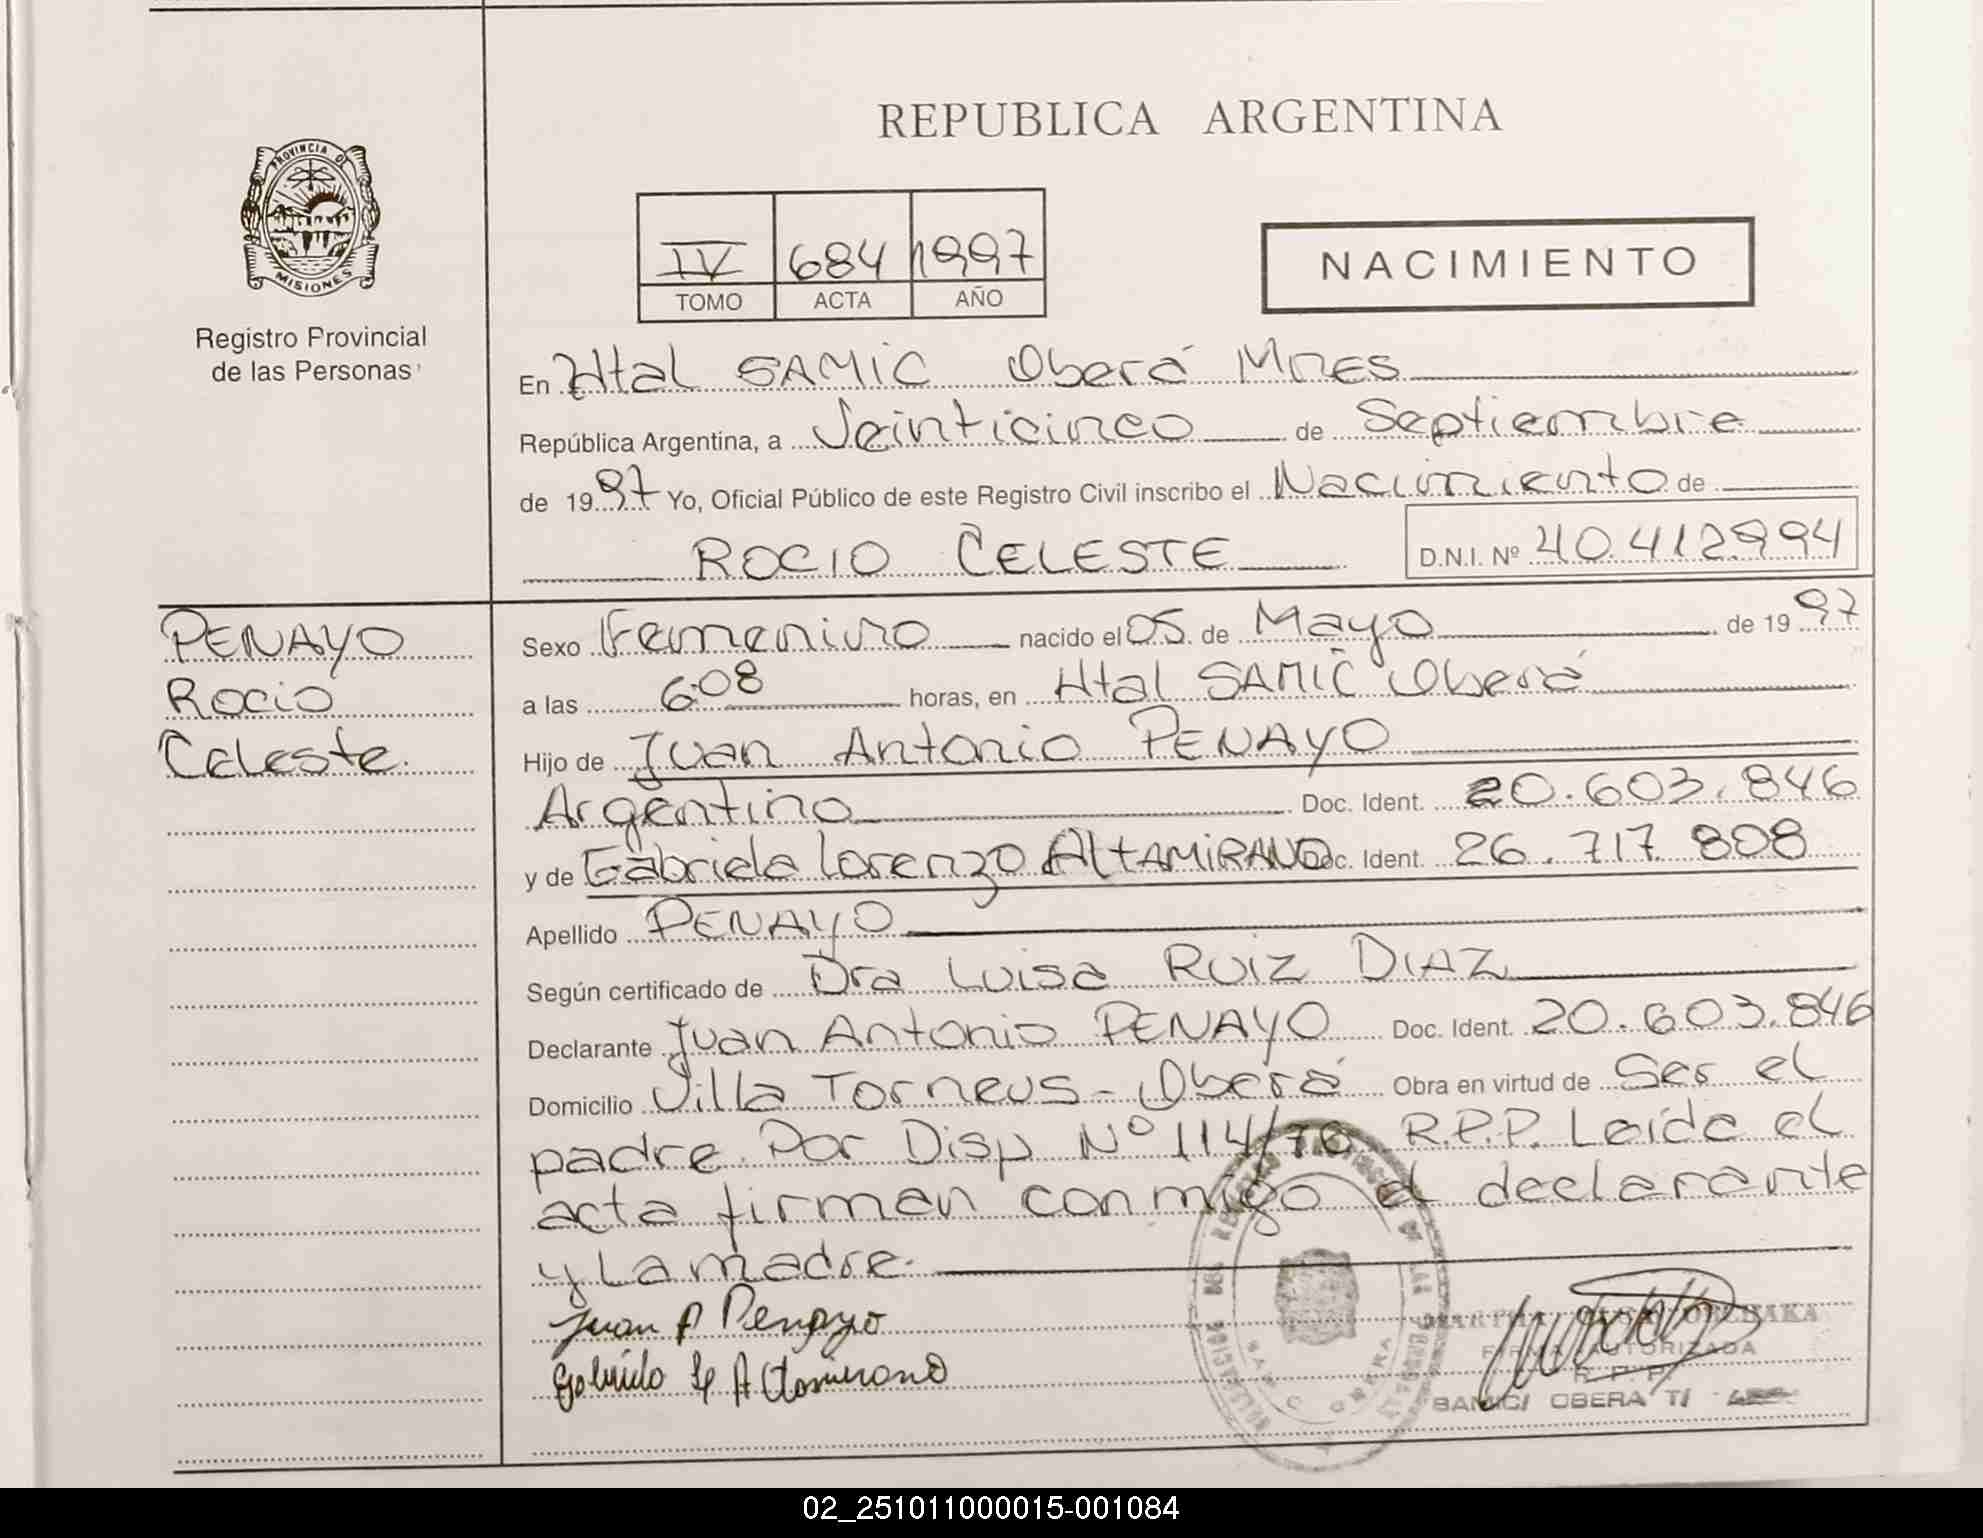 REPUBLICA ARGENTINA
PROVINCIA DE
MISIONES
Registro Provincial
de las Personas
IV 684 1997
TOMO ACTA AÑO
NACIMIENTO
En Htal SAMIC Oberá Mnes
República Argentina, a Veinticinco de Septiembre
de 1997 Yo, Oficial Público de este Registro Civil inscribo el Nacimiento de
ROCIO CELESTE D.N.I. Nº 40.412.994
PENAYO
Rocio
Celeste.
Sexo Femenino nacido el 05 de Mayo de 1997
a las 6:08 horas, en Htal SAMIC Oberá
Hijo de Juan Antonio PENAYO
Argentino Doc. Ident. 20.603.846
y de Gabriela Lorenzo AltAMiRANO Doc. Ident. 26.717.808
Apellido PENAYO
Según certificado de Dra Luisa RUIZ DIAZ
Declarante Juan Antonio PENAYO Doc. Ident. 20.603.846
Domicilio Villa Torneus - Oberá Obra en virtud de Ser el
padre. Por Disp Nº 114/76 R.P.P. Leída el
acta firman conmigo el declarante
y La madre.
Juan A Penayo
FIRMA AUTORIZADA
R P P
SAMIC/ OBERA
02_251011000015-001084